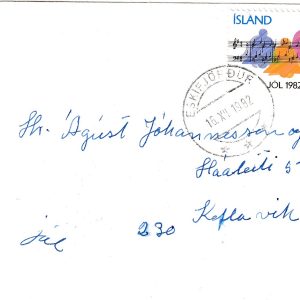 ÍSLAND
JÓL 1982
ESKIFJÖRÐUR
15.XII.1982
Hr. Ágúst Jóhannesson og
Háaleiti 5
230 Keflavík
Jól